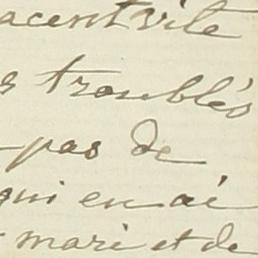 acent vite
s troublés
-pas de
qui en ai
mari et de